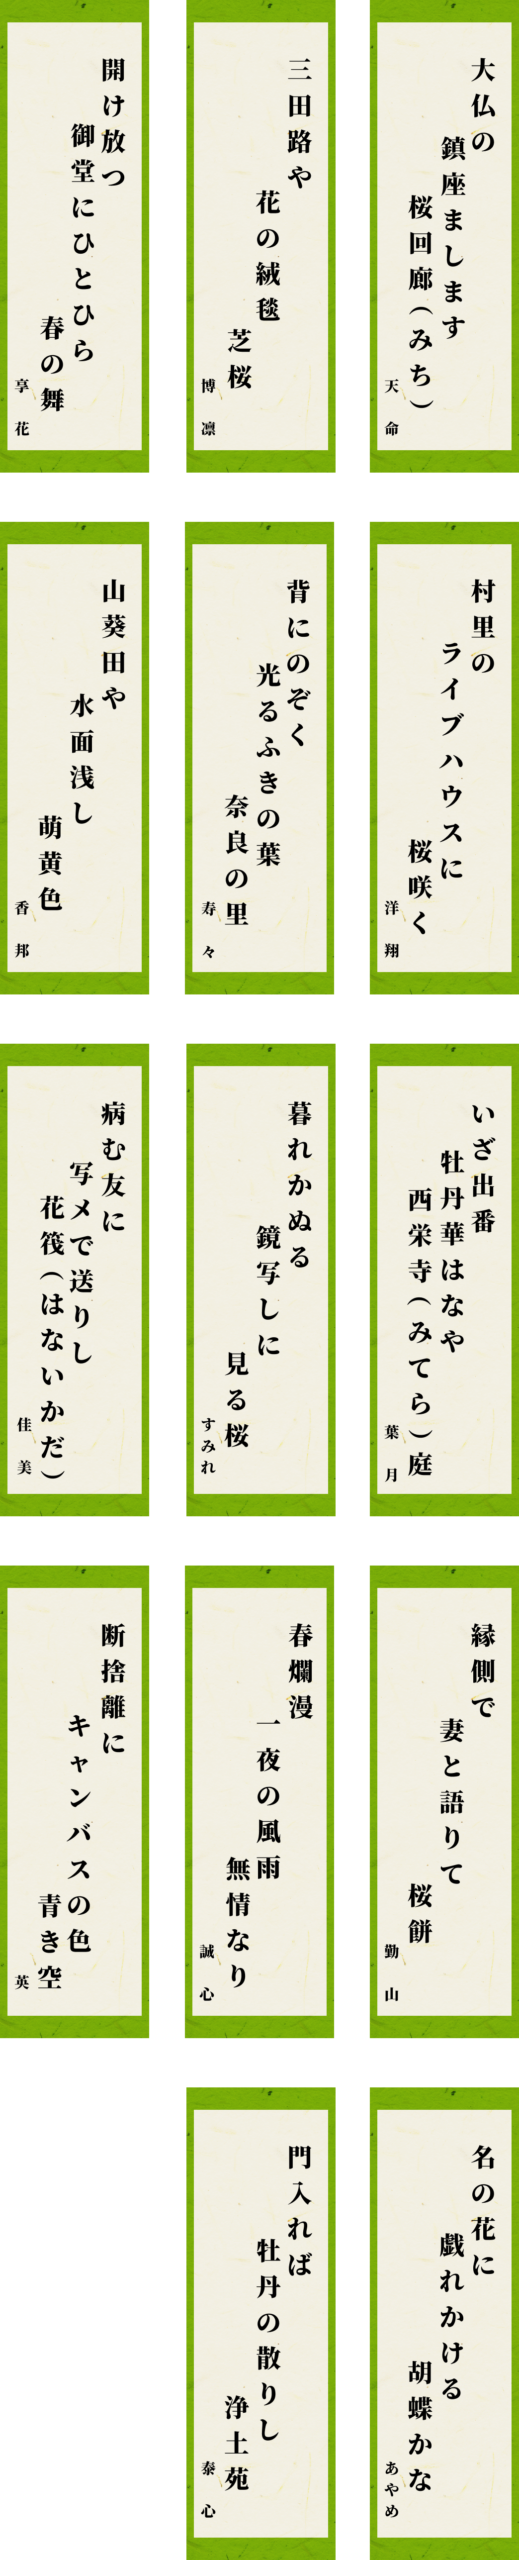 大仏の
鎮座まします
桜回廊（みち）
天命
三田路や
花の絨毯
芝桜
博凛
開け放つ
御堂にひとひら
春の舞
享花
村里の
ライブハウスに
桜咲く
洋翔
背にのぞく
光るふきの葉
奈良の里
寿々
山葵田や
水面浅し
萌黄色
香邦
いざ出番
牡丹華はなや
西栄寺（みてら）庭
葉月
暮れかぬる
鏡写しに
見る桜
すみれ
病む友に
写メで送りし
花筏（はないかだ）
佳美
縁側で
妻と語りて
桜餅
勤山
春爛漫
一夜の風雨
無情なり
誠心
断捨離に
キャンバスの色
青き空
英
名の花に
戯れかける
胡蝶かな
あやめ
門入れば
牡丹の散りし
浄土苑
泰心